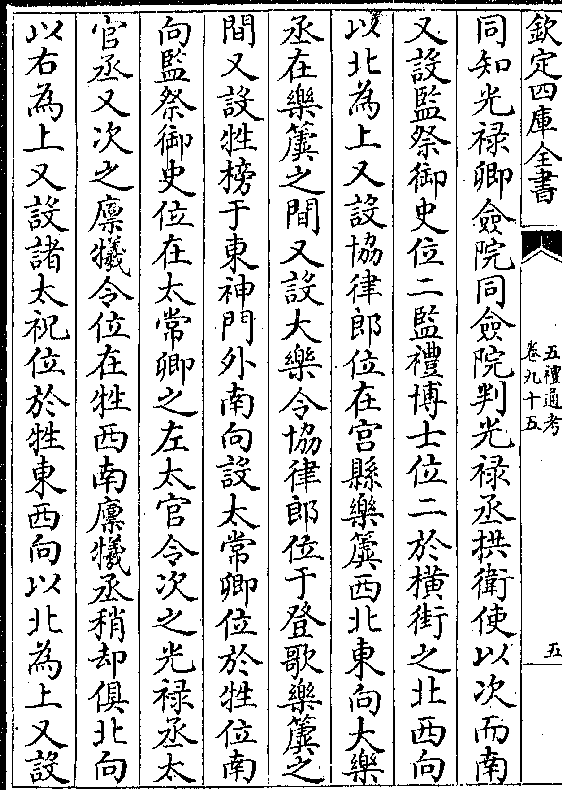 欽定四庫全書
五禮通考
卷九十五
五
同知光禄卿僉院同僉院判光禄丞拱衛使以次而南
又設監祭御史位二監禮博士位二於橫街之北西向
以北為上又設協律郎位在宫縣樂簴西北東向大樂
丞在樂簴之間又設大樂令協律郎位于登歌樂簴之
間又設牲榜于東神門外南向設太常卿位於牲位南
向監祭御史位在太常卿之左太官令次之光禄丞太
官丞又次之廪犧令位在牲西南廪犧丞稍却俱北向
以右為上又設諸太祝位於牲東西向以北為上又設